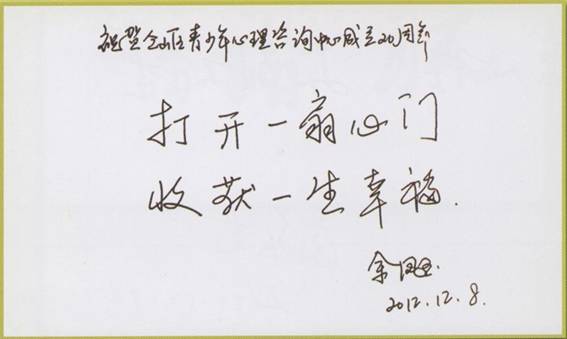 祝贺金山区青少年心理咨询中心成立20周年
打开一扇心门
收获一生幸福.
余
2012.12.8.